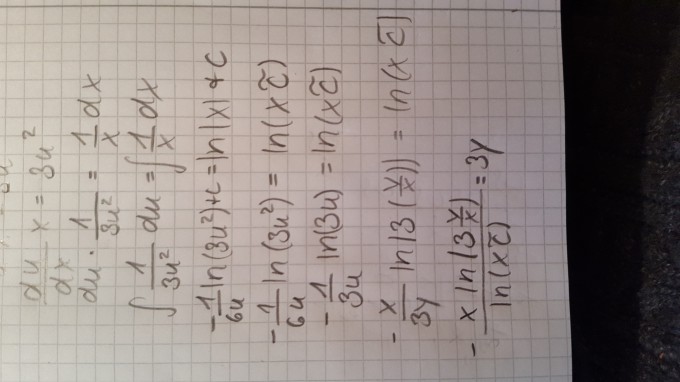 du/dx x = 3u²
du · 1/3u² = 1/x dx
∫ 1/3u² du = ∫ 1/x dx
-1/6u ln(3u²)+c = ln|x| + c
-1/6u ln(3u²) = ln(x c̃)
-1/3u ln(3u) = ln(x c̃)
-x/3y ln(3(y/x)) = ln(x c̃)
-x ln(3y/x)/ln(x c̃) = 3y